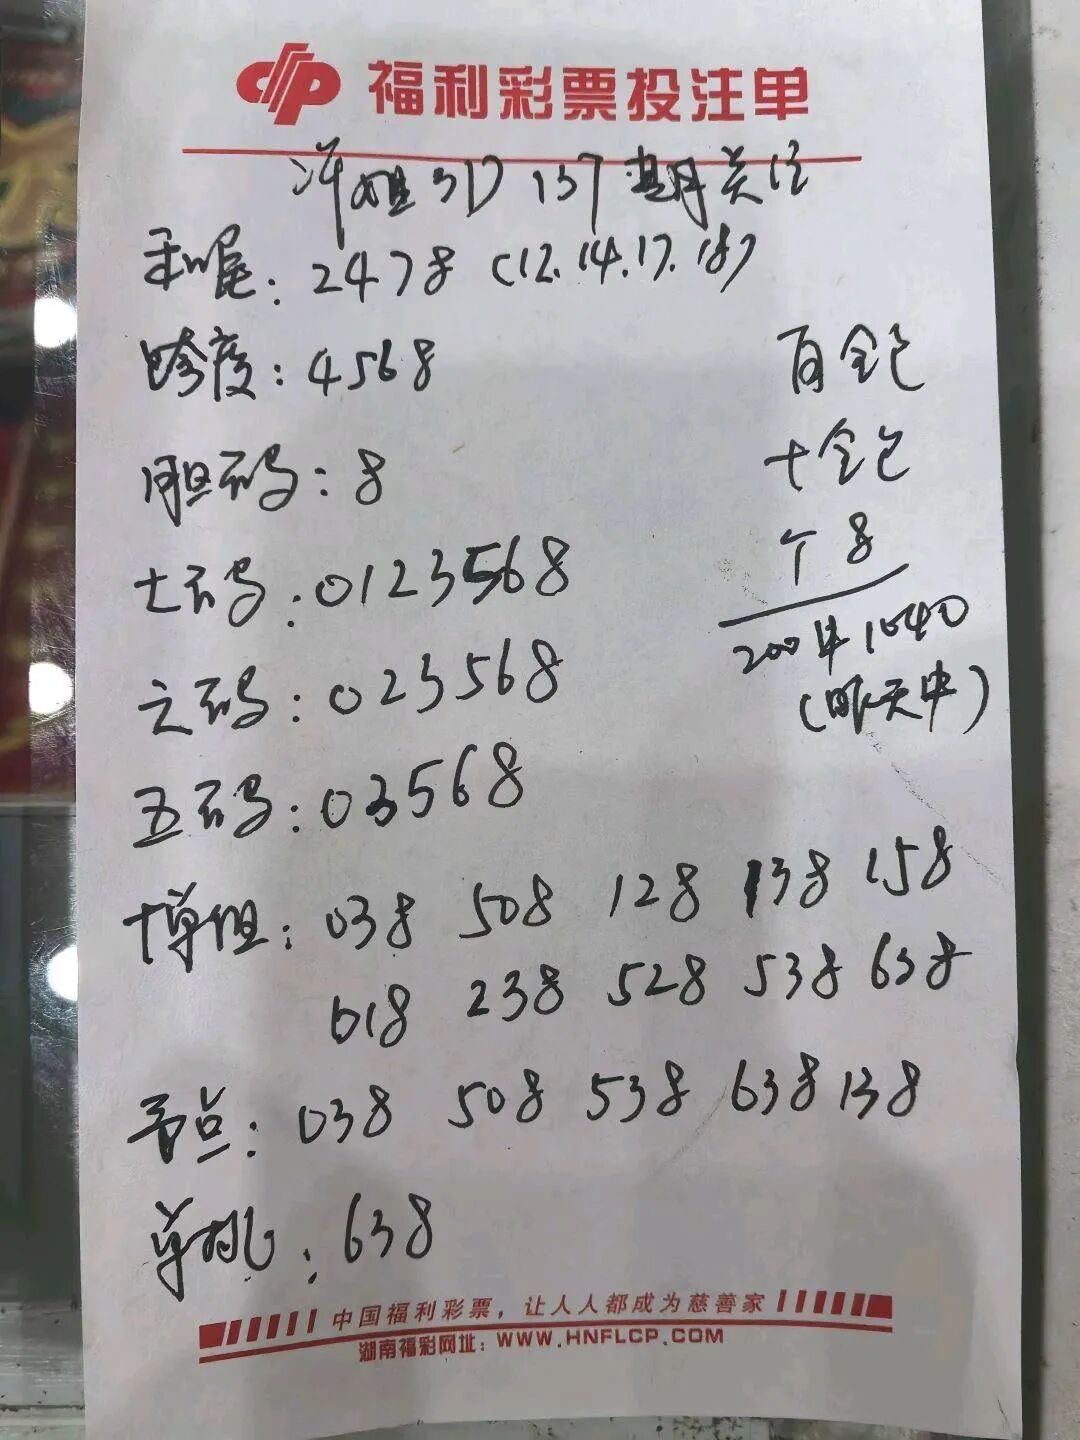 福利彩票投注单
姐3D 137期关注
和尾：2478（12.14.17.18）
跨度：4568
百全包
胆码：8
十全包
七码：0123568
个8
200中1040
（昨天中）
六码：023568
五码：03568
博组：038 508 128 138 158
618 238 528 538 638
节点：038 508 538 638 138
单挑：638
中国福利彩票，让人人都成为慈善家
湖南福彩网址：WWW.HNFLCP.COM